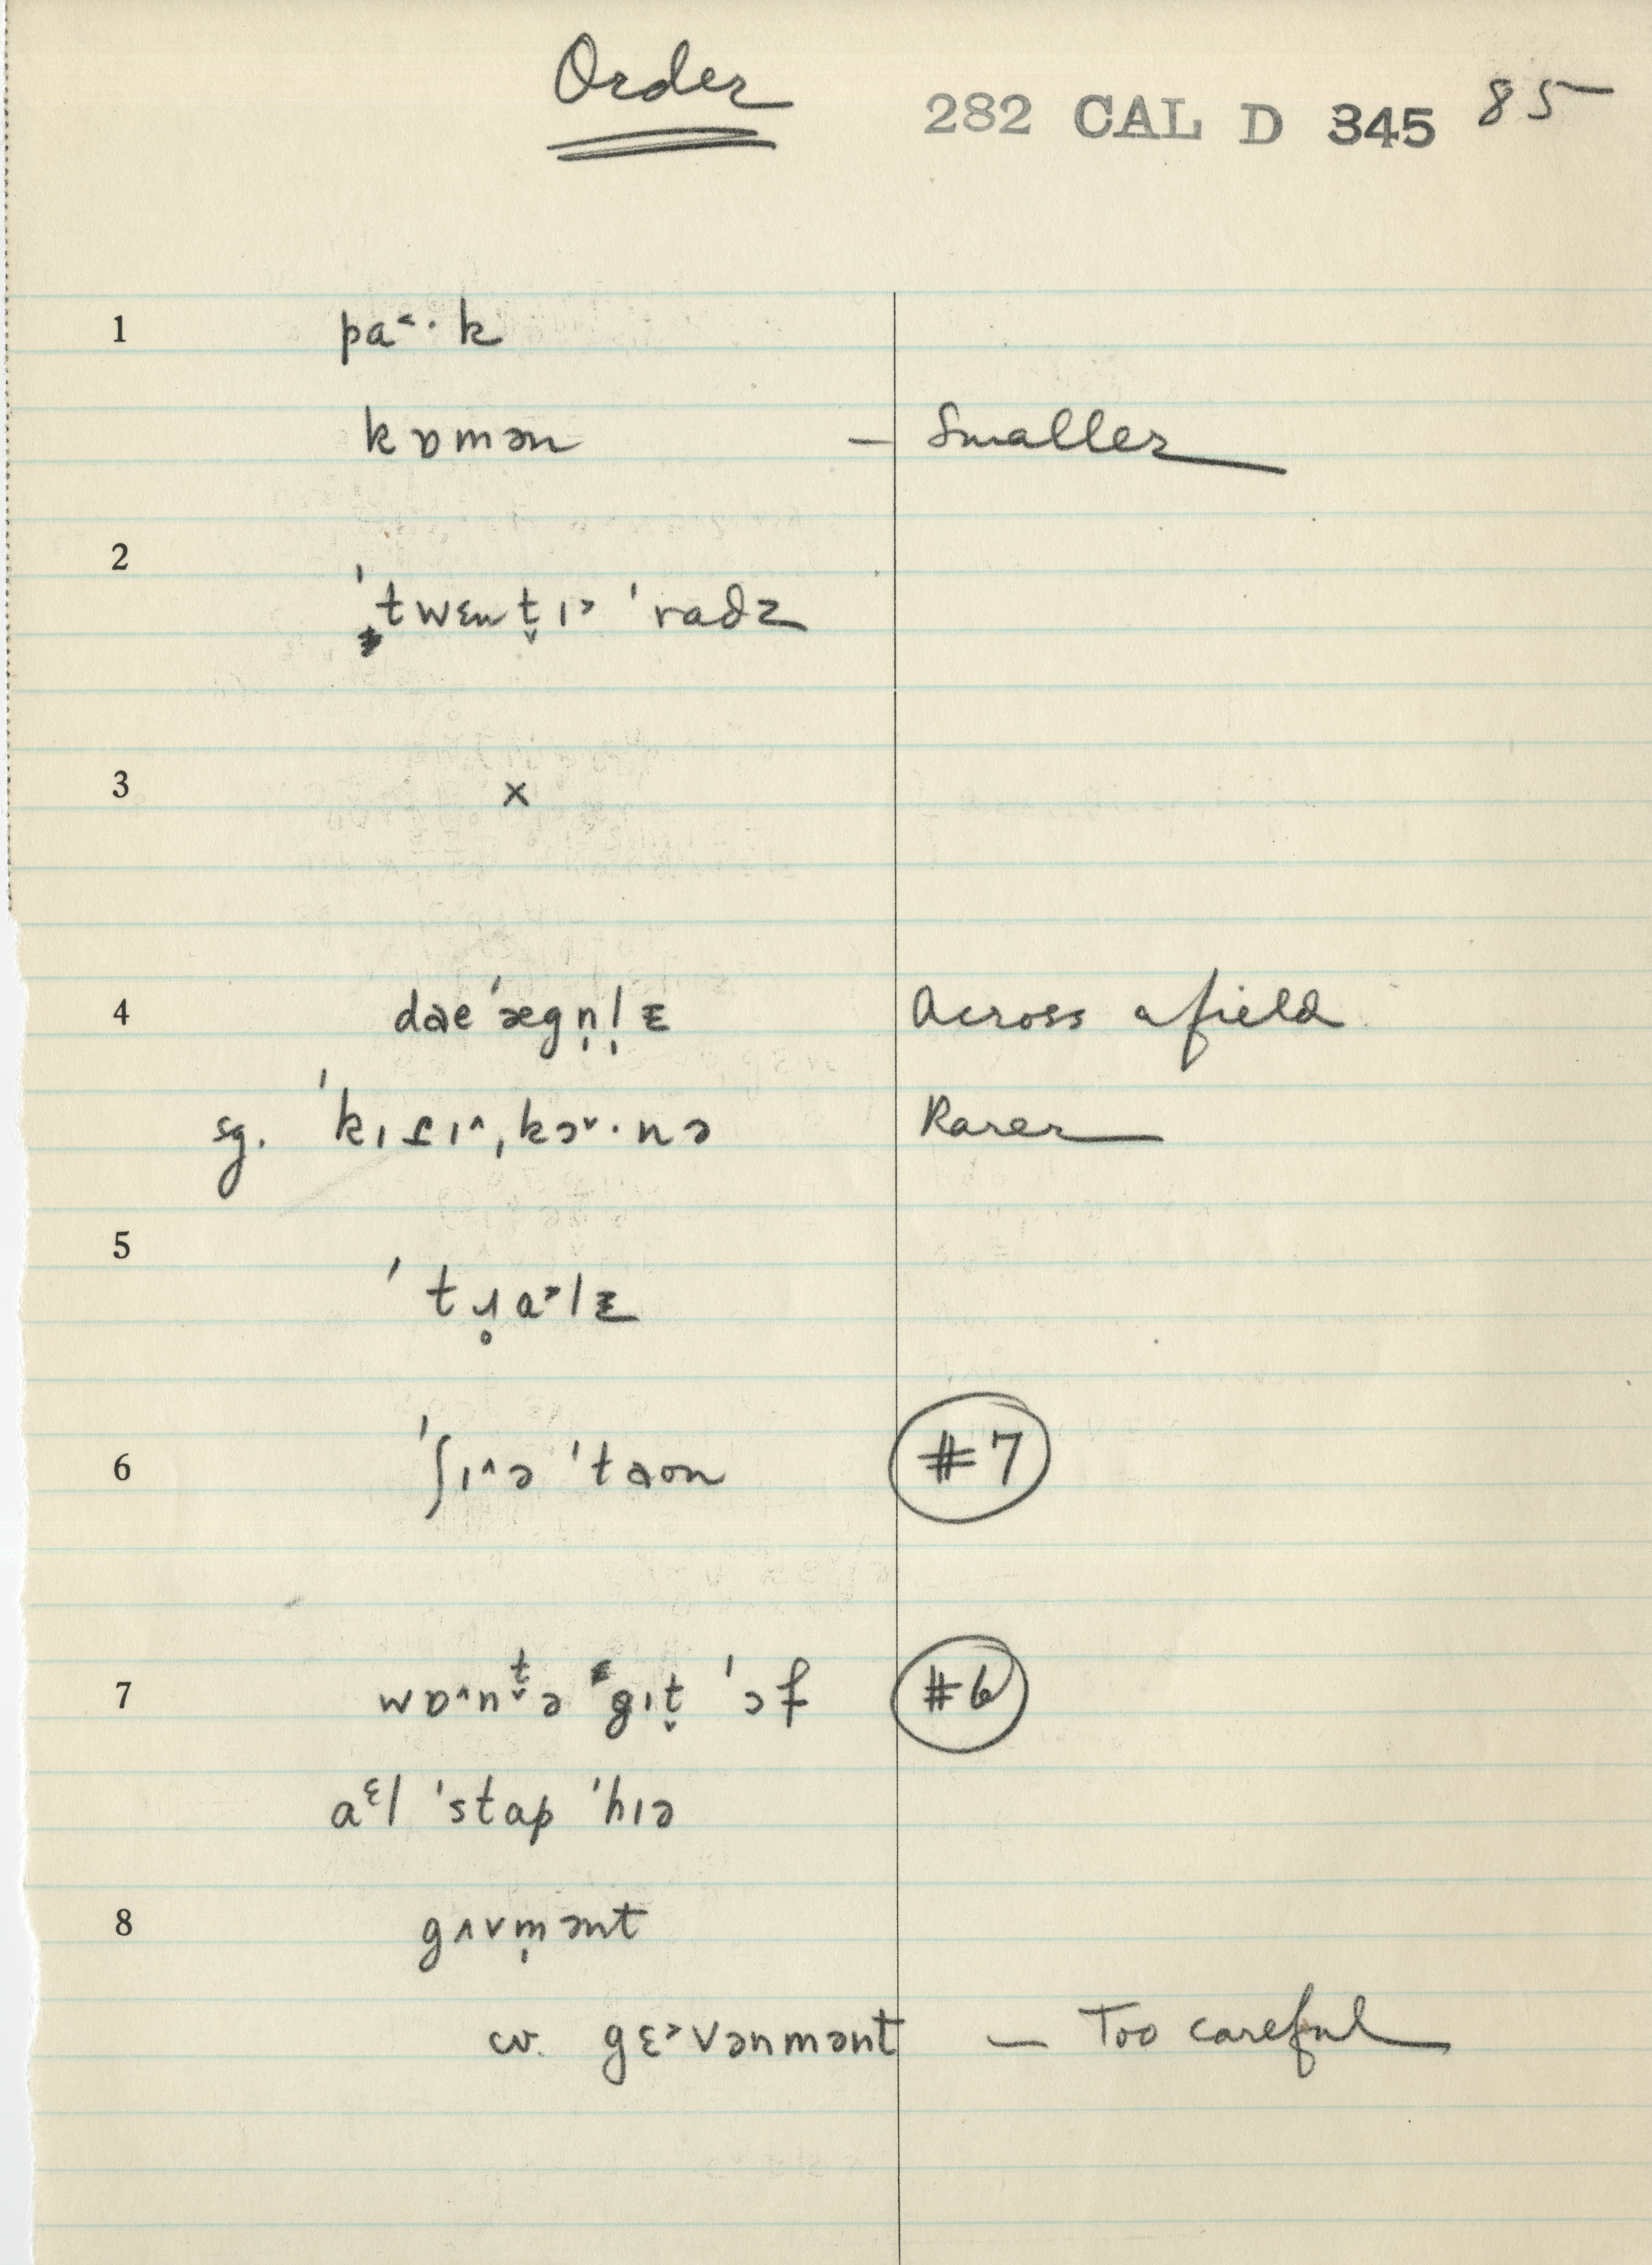 Order
282 CAL D 345 85
1 pa˂· k
kɒmən — Smaller
2
ˈtwɛnt̬ɪ˃ ˈradz
3 x
4 daeˈægn̩l̩ᴇ Across a field
sg. ˈkɪʃɪ˄ˌkɔ˅·nə Rarer
5
ˈtɹ̥ɑ˃lᴇ
6 ˈʃɪ˄ə ˈtaʊn #7
7 wɒ˄nt̬ə gɪt̬ ˈɔf #6
aᵋl ˈstap ˈhɪə
8 gʌvm̩ənt
cv. gɛ˃vənmənt — Too careful